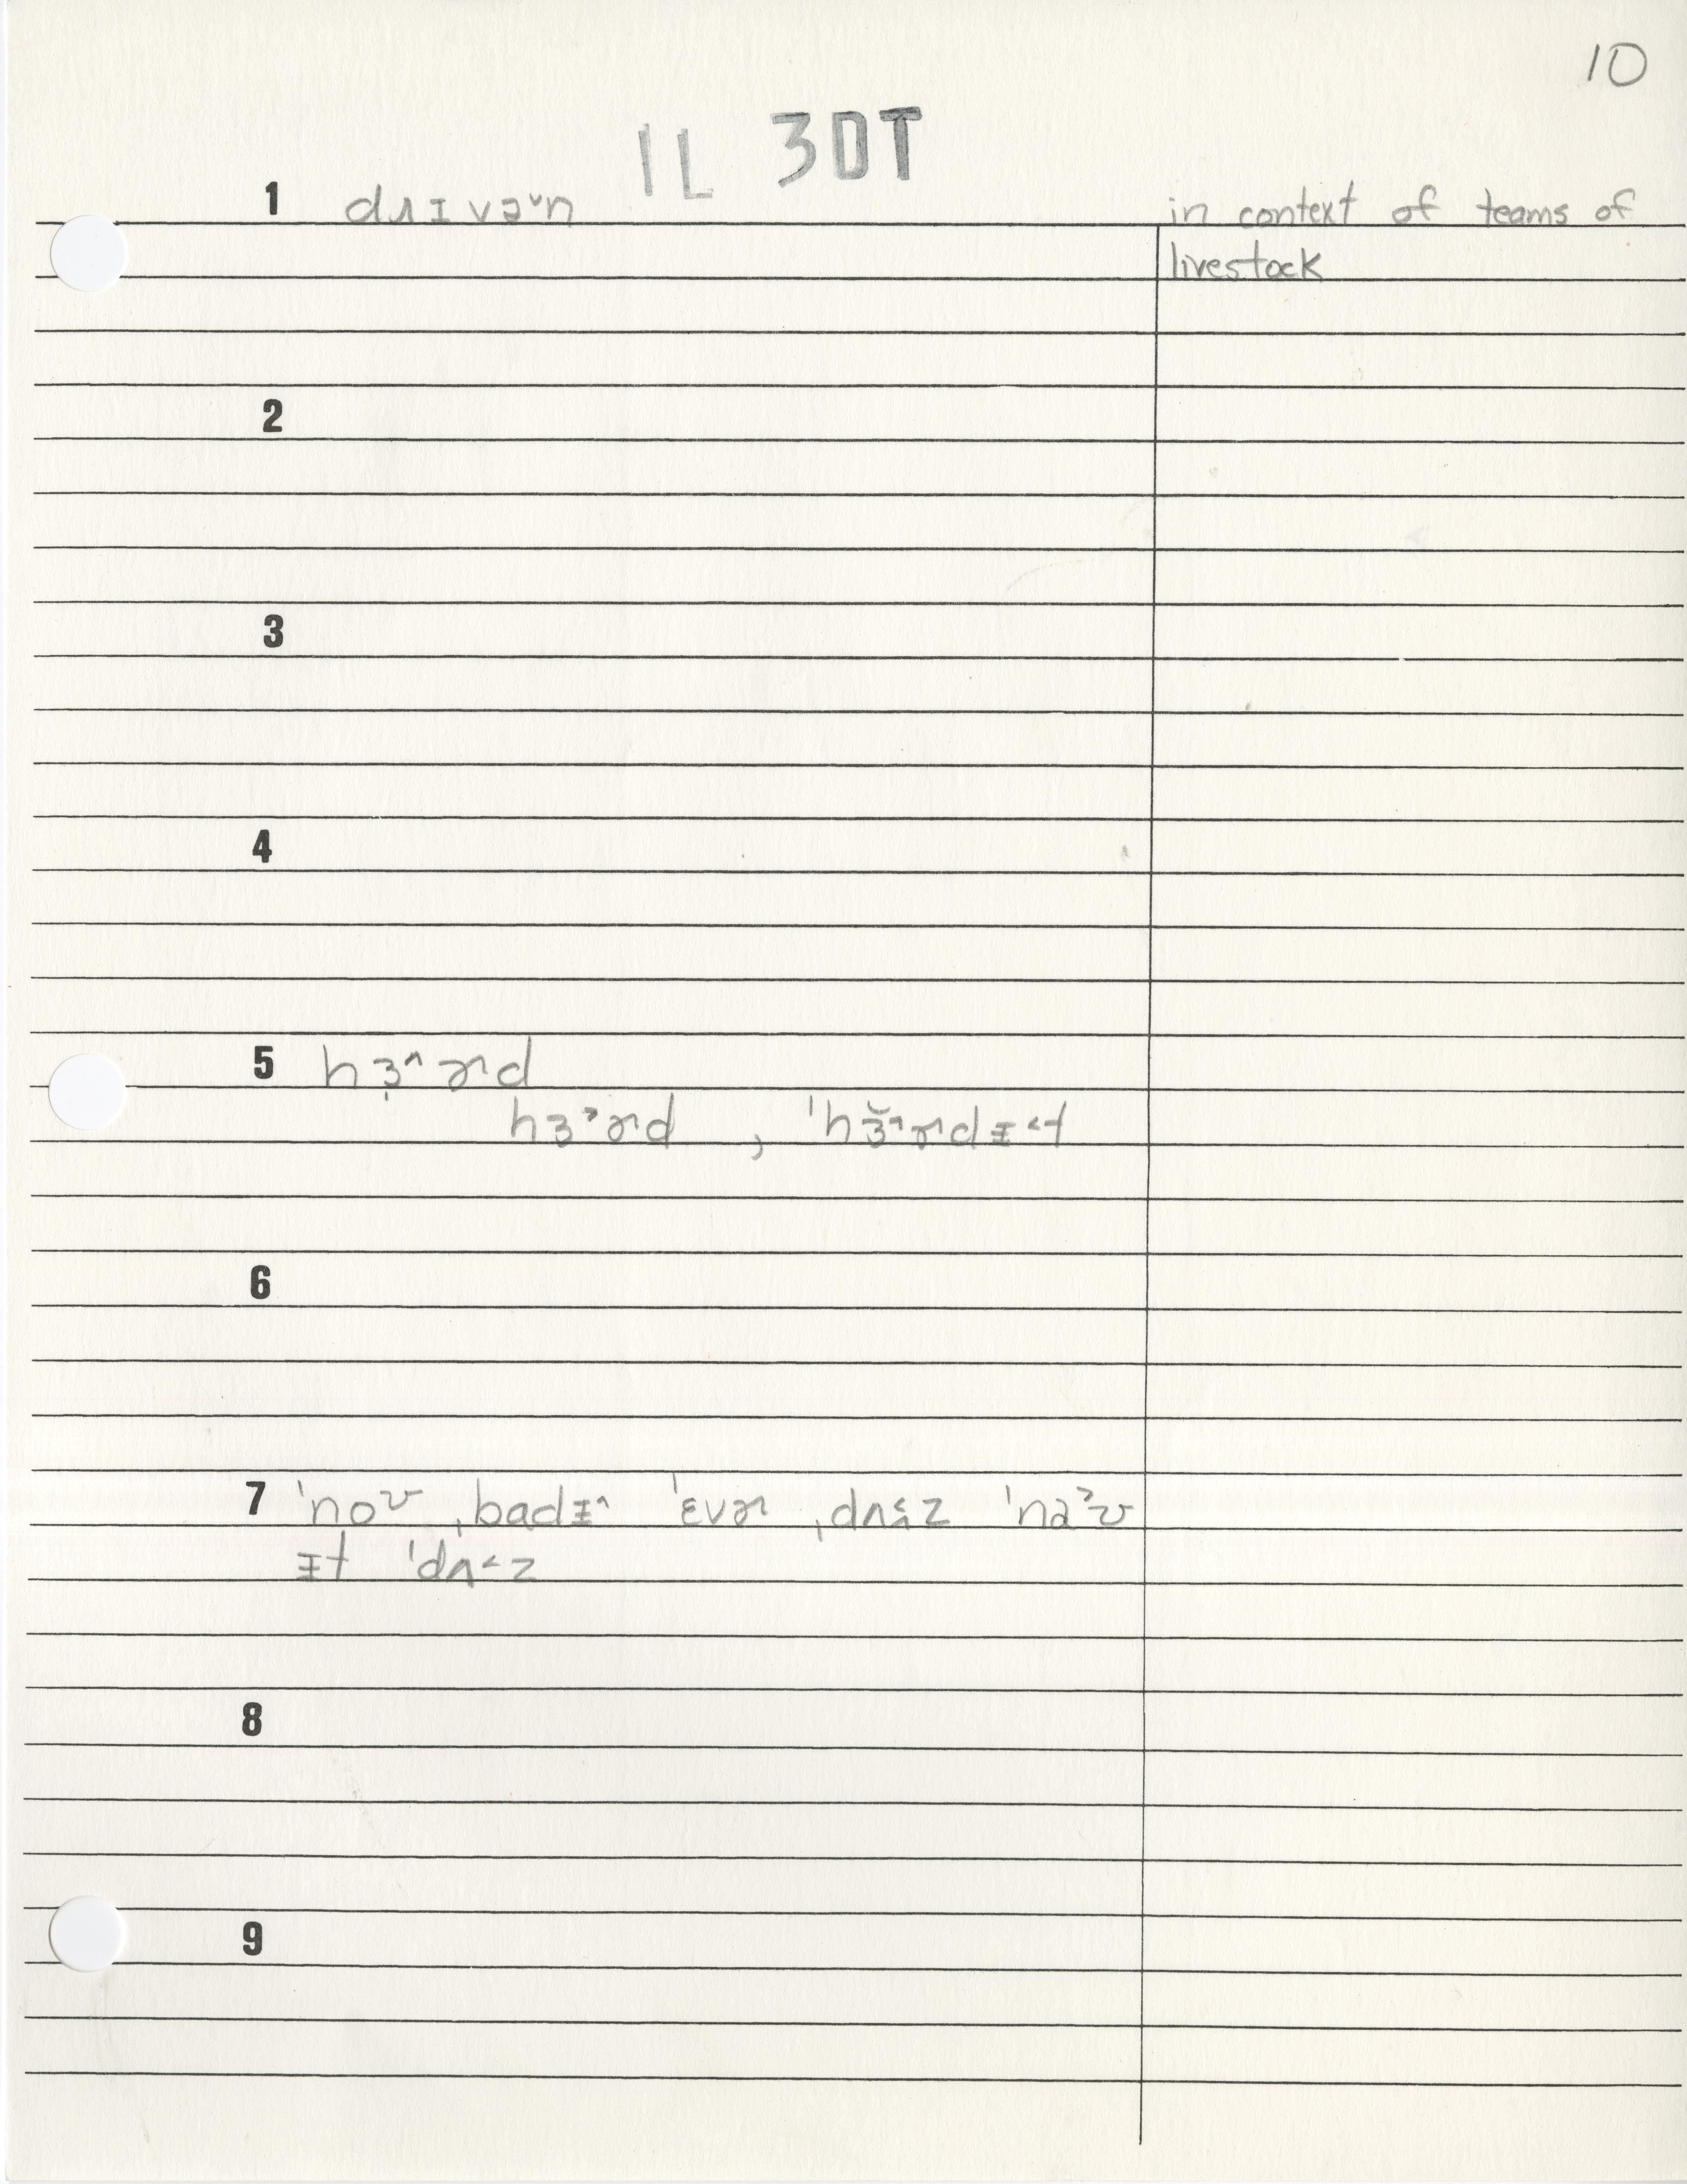 10
IL 3DT
1 dɹɪvə˘n in context of teams of
livestock
2
3
4
5 hɜ̣^ɚd
hɜ˃ɚd , ˈhɜ̆˄ɚdɪ˂t
6
7 ˈnoʊ ˌbadɪ˄ ˈɛvɚ ˌdʌ˂z ˈna˃ʊ
ɪt ˈdʌ˂z
8
9